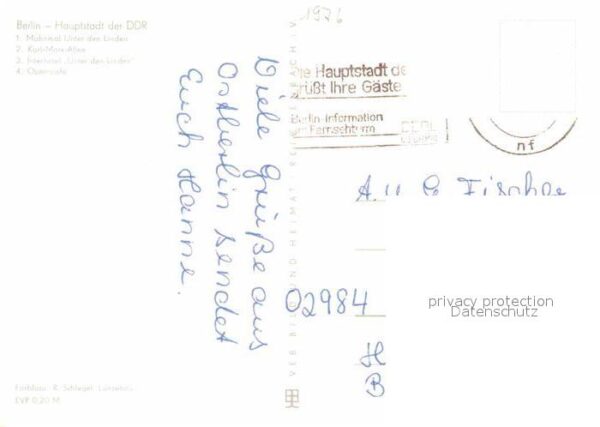 Berlin – Hauptstadt der DDR
1. Mahnmal Unter den Linden
2. Karl-Marx-Allee
3. Interhotel „Unter den Linden"
4. Operncafé
Viele Grüße aus
Ostberlin sendet
Euch Hanne.
Farbfoto: R. Schlegel,
EVP 0,20 M
VEB BILD UND HEIMAT REICHENBACH I. V.
1976
Die Hauptstadt de
grüßt Ihre Gäste
Berlin-Information
Fernsehturm
nf
A. u
Fischer
02984
H
B
privacy protection
Datenschutz